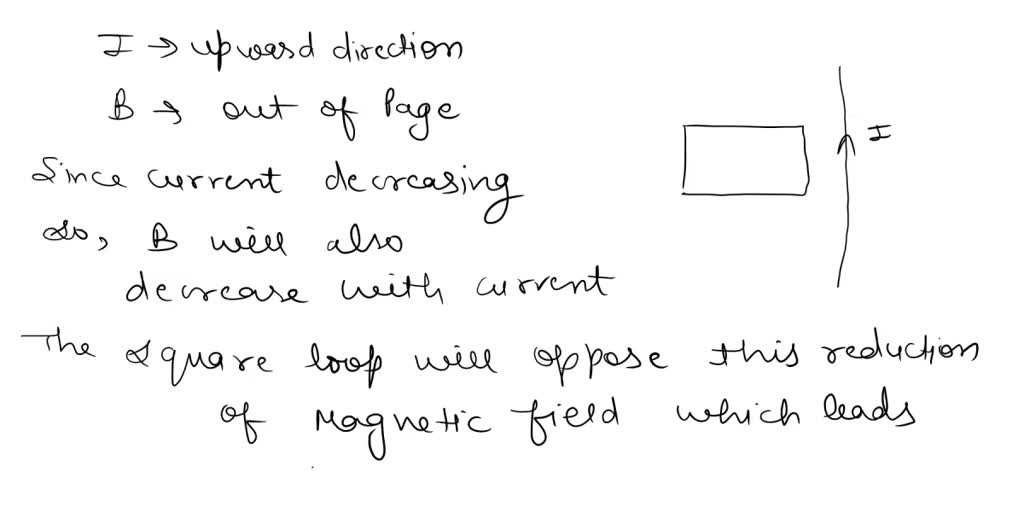 I → upward direction
B → out of Page
I
Since current decreasing
So, B will also
decrease with current
The square loop will oppose this reduction
of Magnetic field which leads